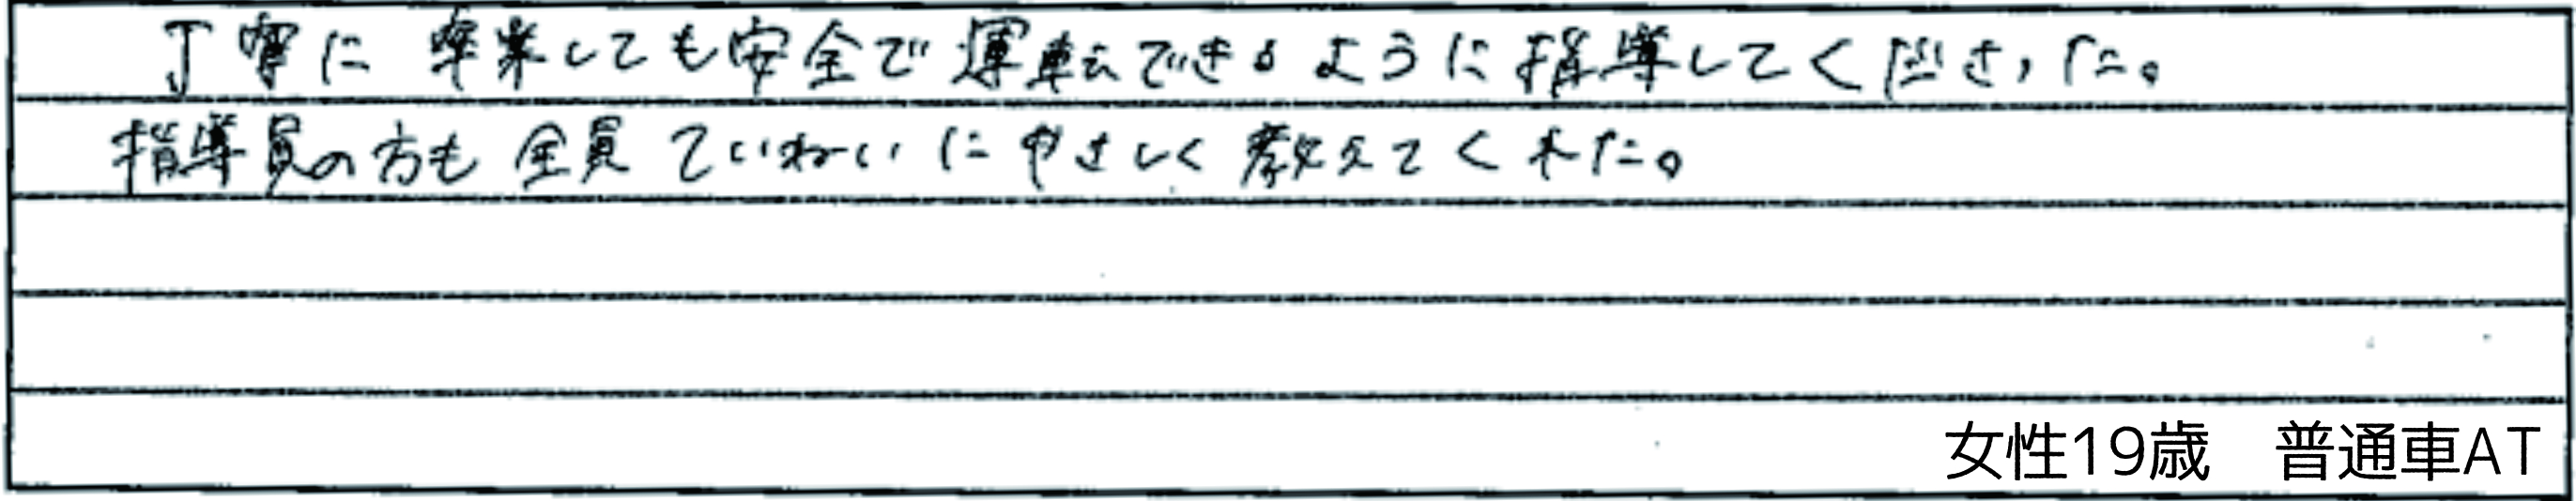 丁寧に 卒業しても安全で運転できるように指導してくださった。
指導員の方も 全員ていねいにやさしく教えてくれた。
女性19歳　普通車AT